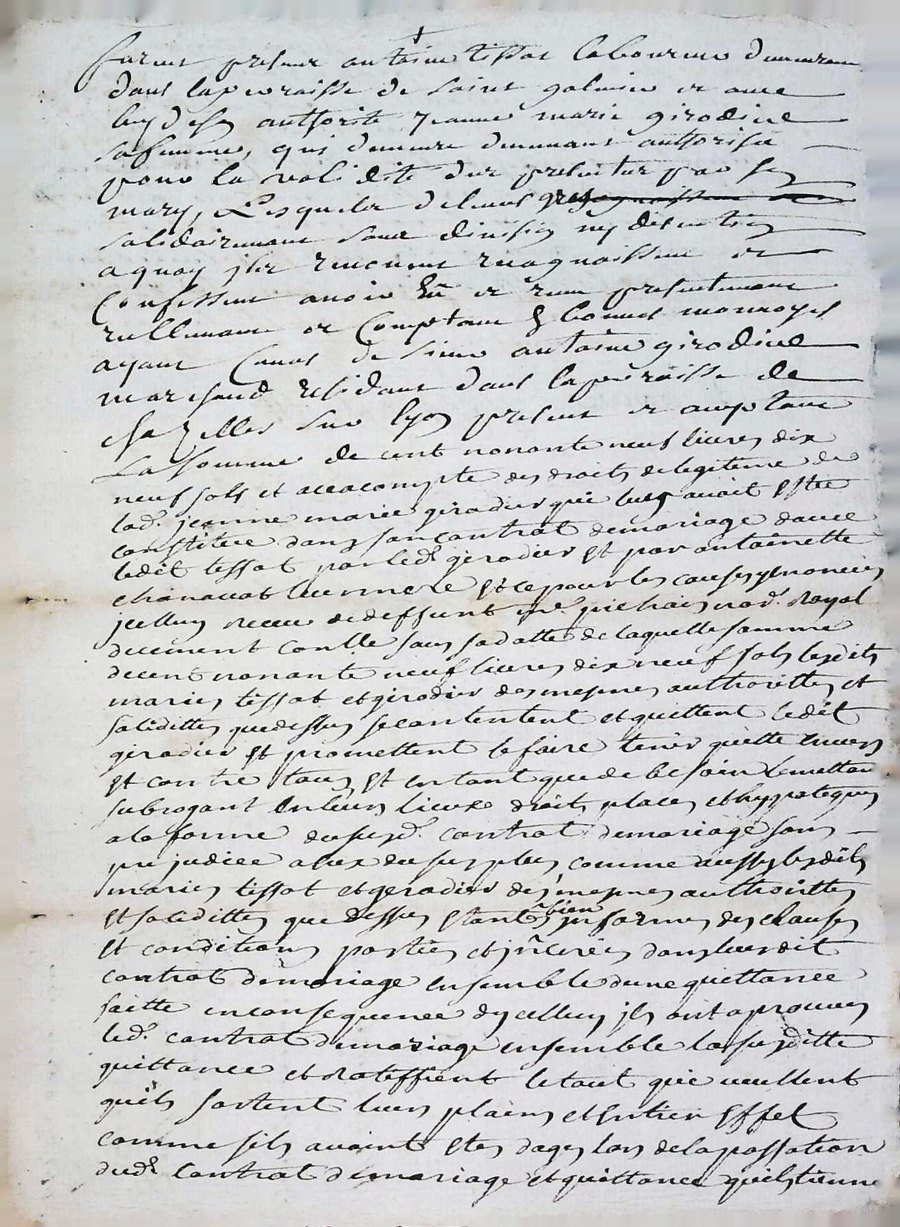 furent presens antoine tissot laboureur demeurant
dans la parroisse de saint galmier et avec
luy de son authorité jeanne marie girodier
sa femme, qui demeure deument authorisée
pour la validité des presentes par son
mary, Lesquels de leurs gré
solidairement sans division ny discution
a quoy ils renoncent recognoissent et
Confessent avoir hu et receu presentement
reellement et Comptant en bonnes monnoyes
ayant Cours de sieur antoine girodier
marchand residant dans la parroisse de
chazelles sur lyon present et acceptant
La somme de cent nonante neuf livres dix
neuf sols et a acompte des droits de legitime de
lad. jeanne marie giradier que luy avoit estee
constituee dans son contrat de mariage davec
ledit tissot par led. geradier et par antoinette
chanavat leur mere et ce pour les causes y enoncees
jcelluy receu de deffunt me pichais nore. Royal
deument conlle sous sa datte de laquelle somme
de cent nonante neuf livres dix neuf sols lesdits
maries tissot et girodier des mesmes authorittes et
solidittes que dessus se contentent et quittent ledit
giradier et promettent le faire tenir quitte envers
et contre tous et en tant que de besoin le mettant
subrogant en leurs lieux droits places et hypoteques
a la forme du susd. contrat de mariage sans
prejudice a eux du surplus, comme aussy lesdits
maries tissot et geradier des mesmes authorittes
et solidittes que dessus estants bien informes des clauses
et conditions portées et jnserées dans leurdit
contrat de mariage ensemble dune quittance
faitte en consequence dycelluy jls ont aprouvés
led. contrat de mariage ensemble la susditte
quittance et rateffient le tout que veullent
quils sortent leurs pleins et entier effet
comme sils avoint etes dages lors de la passation
dud. contrat de mariage et quittance quils tienne